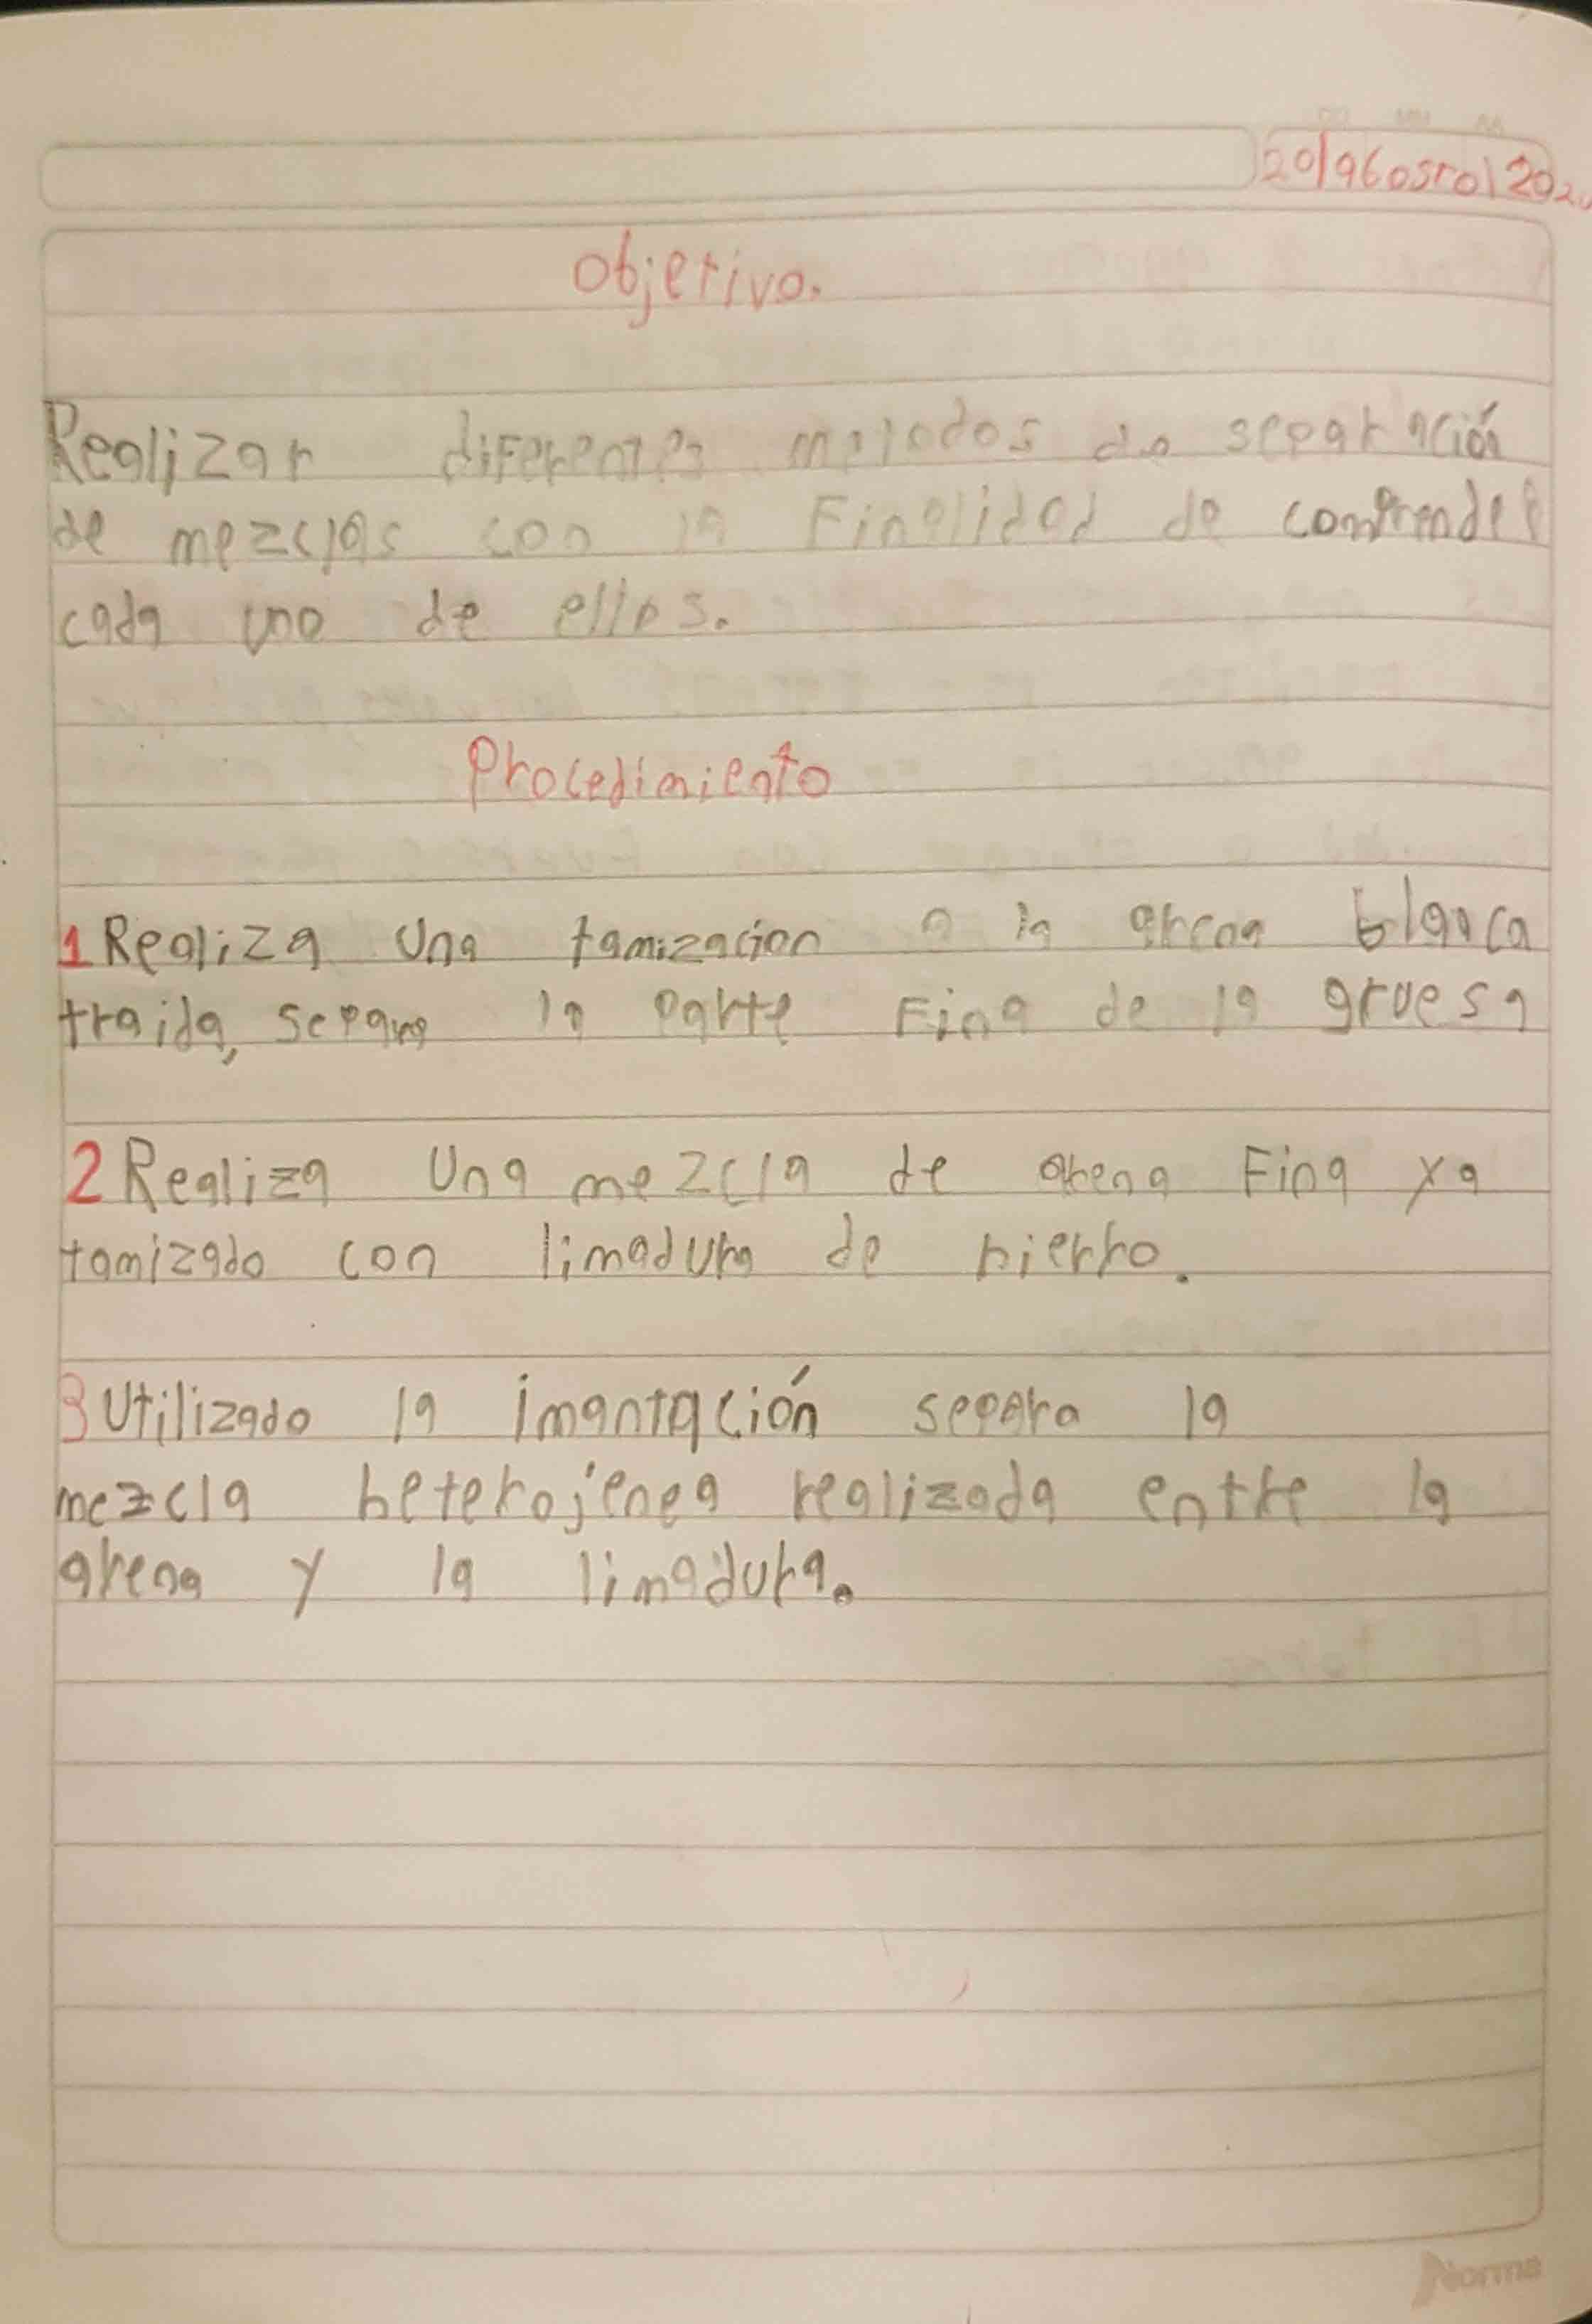 DD MM AA
20/agosto/202
Objetivo.
Realizar diferentes metodos de separación
de mezclas con la Finalidad de comprender
cada uno de ellos.
Procedimiento
1 Realiza Una tamizacion a la arena blanca
traida, separa la parte Fina de la gruesa
2 Realiza Una mezcla de arena Fina ya
tamizado con limadura de hierro.
3 Utilizado la imantación separa la
mezcla heterojenea realizada entre la
arena y la limadura.
Norma